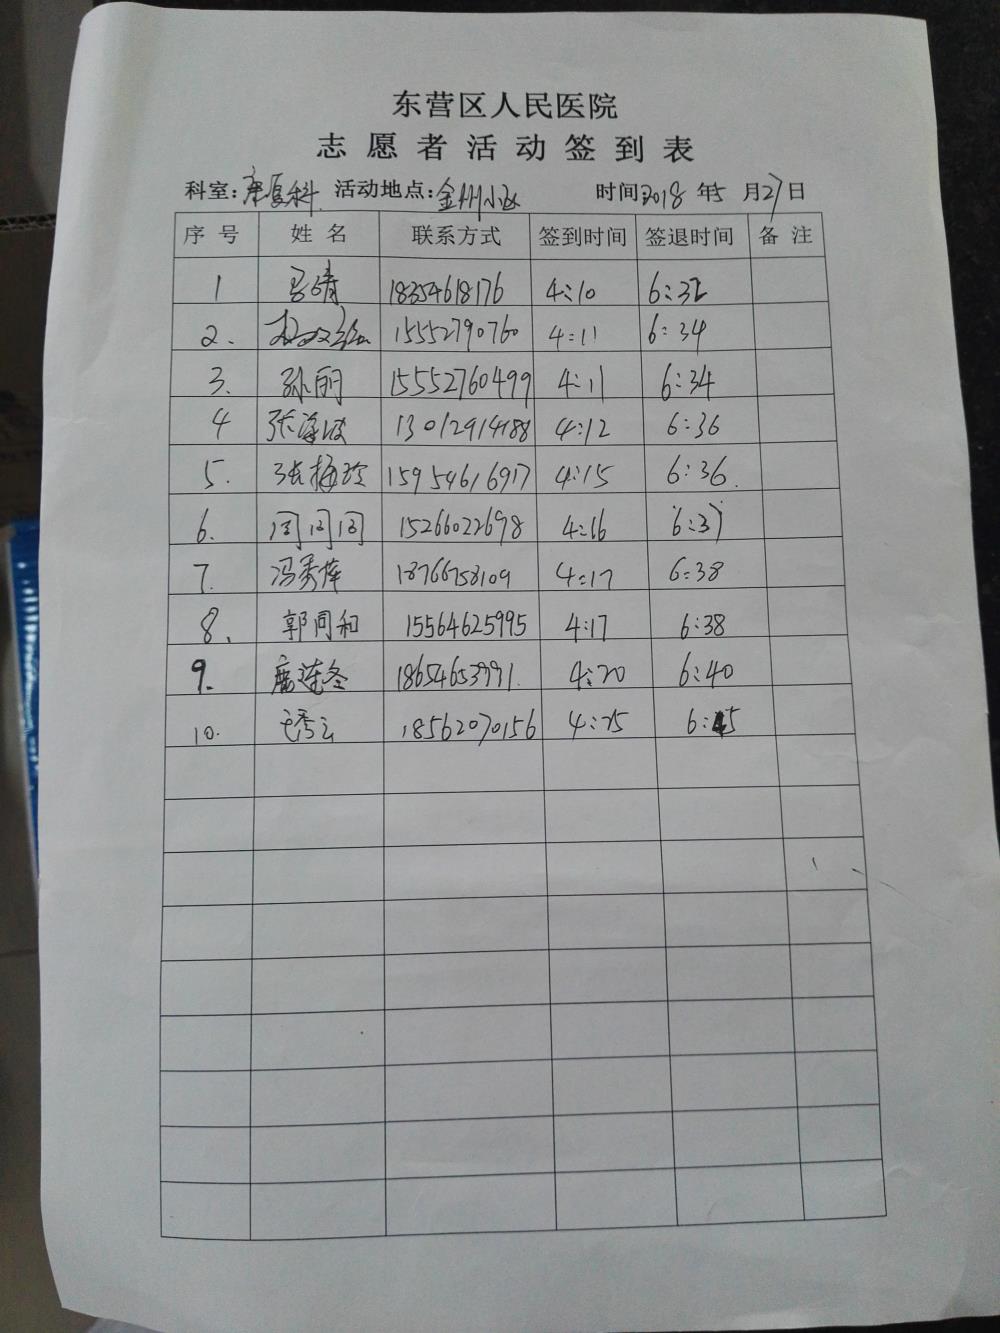 东营区人民医院
志愿者活动签到表
科室:康复科 活动地点:金州小区 时间2018年5月27日
序号 姓名 联系方式 签到时间 签退时间 备注
1 18354618176 4:10 6:32
2. 15552790760 4:11 6:34
3. 孙丽 15552760499 4:11 6:34
4 13012914188 4:12 6:36
5. 张梅玲 15954616917 4:15 6:36.
6. 周同同 15266022698 4:16 6:37
7. 冯秀萍 18766758109 4:17 6:38
8. 郭同和 15564625995 4:17 6:38
9. 鹿连冬 18654653991. 4:20 6:40
10. 18562070156 4:25 6:45